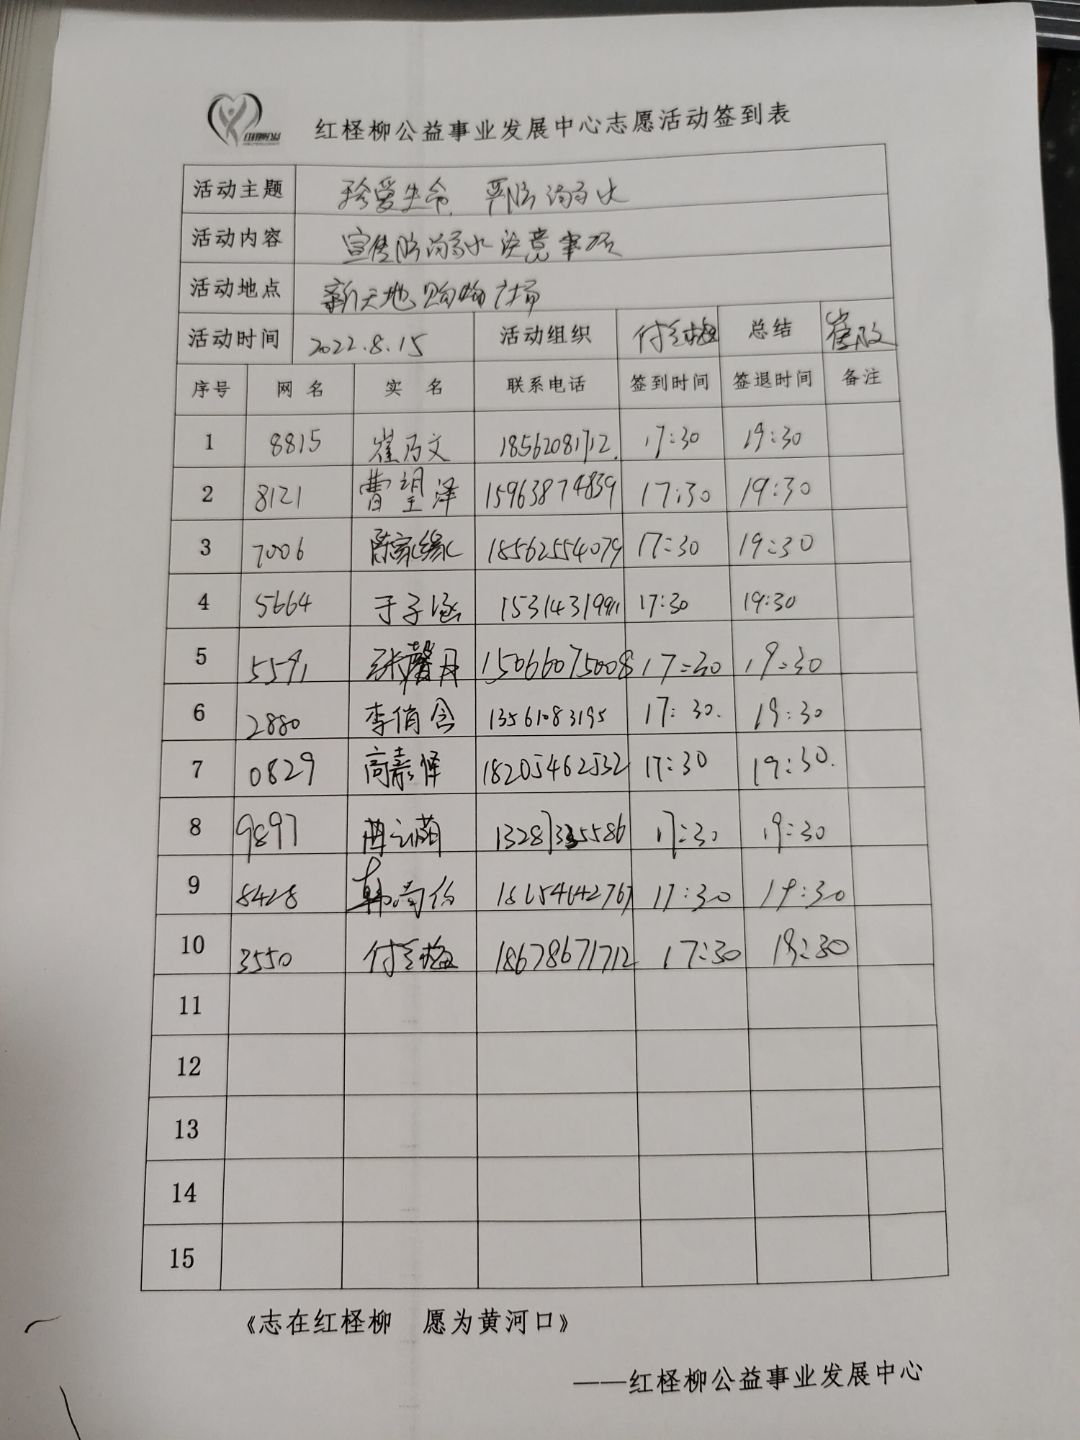 红柽柳公益事业发展中心志愿活动签到表
活动主题 珍爱生命 严防溺水
活动内容 宣传防溺水注意事项
活动地点 新天地购物广场
活动时间 2022.8.15 活动组织 总结 崔
序号 网名 实名 联系电话 签到时间 签退时间 备注
1 8815 崔乃文 18562081712 17:30 19:30
2 8121 曹望泽 15963874839 17:30 19:30
3 7006 陈家缘 18562554079 17:30 19:30
4 5664 于子涵 17:30 19:30
5 5591 张馨月 15066075008 17:30 19:30
6 2880 李俏含 13561083195 17:30 19:30
7 0829 高嘉怿 18205462532 17:30 19:30
8 9897 17:30 19:30
9 8428 韩 18654642767 17:30 19:30
10 3550 18678671712 17:30 19:30
11
12
13
14
15
《志在红柽柳 愿为黄河口》
——红柽柳公益事业发展中心